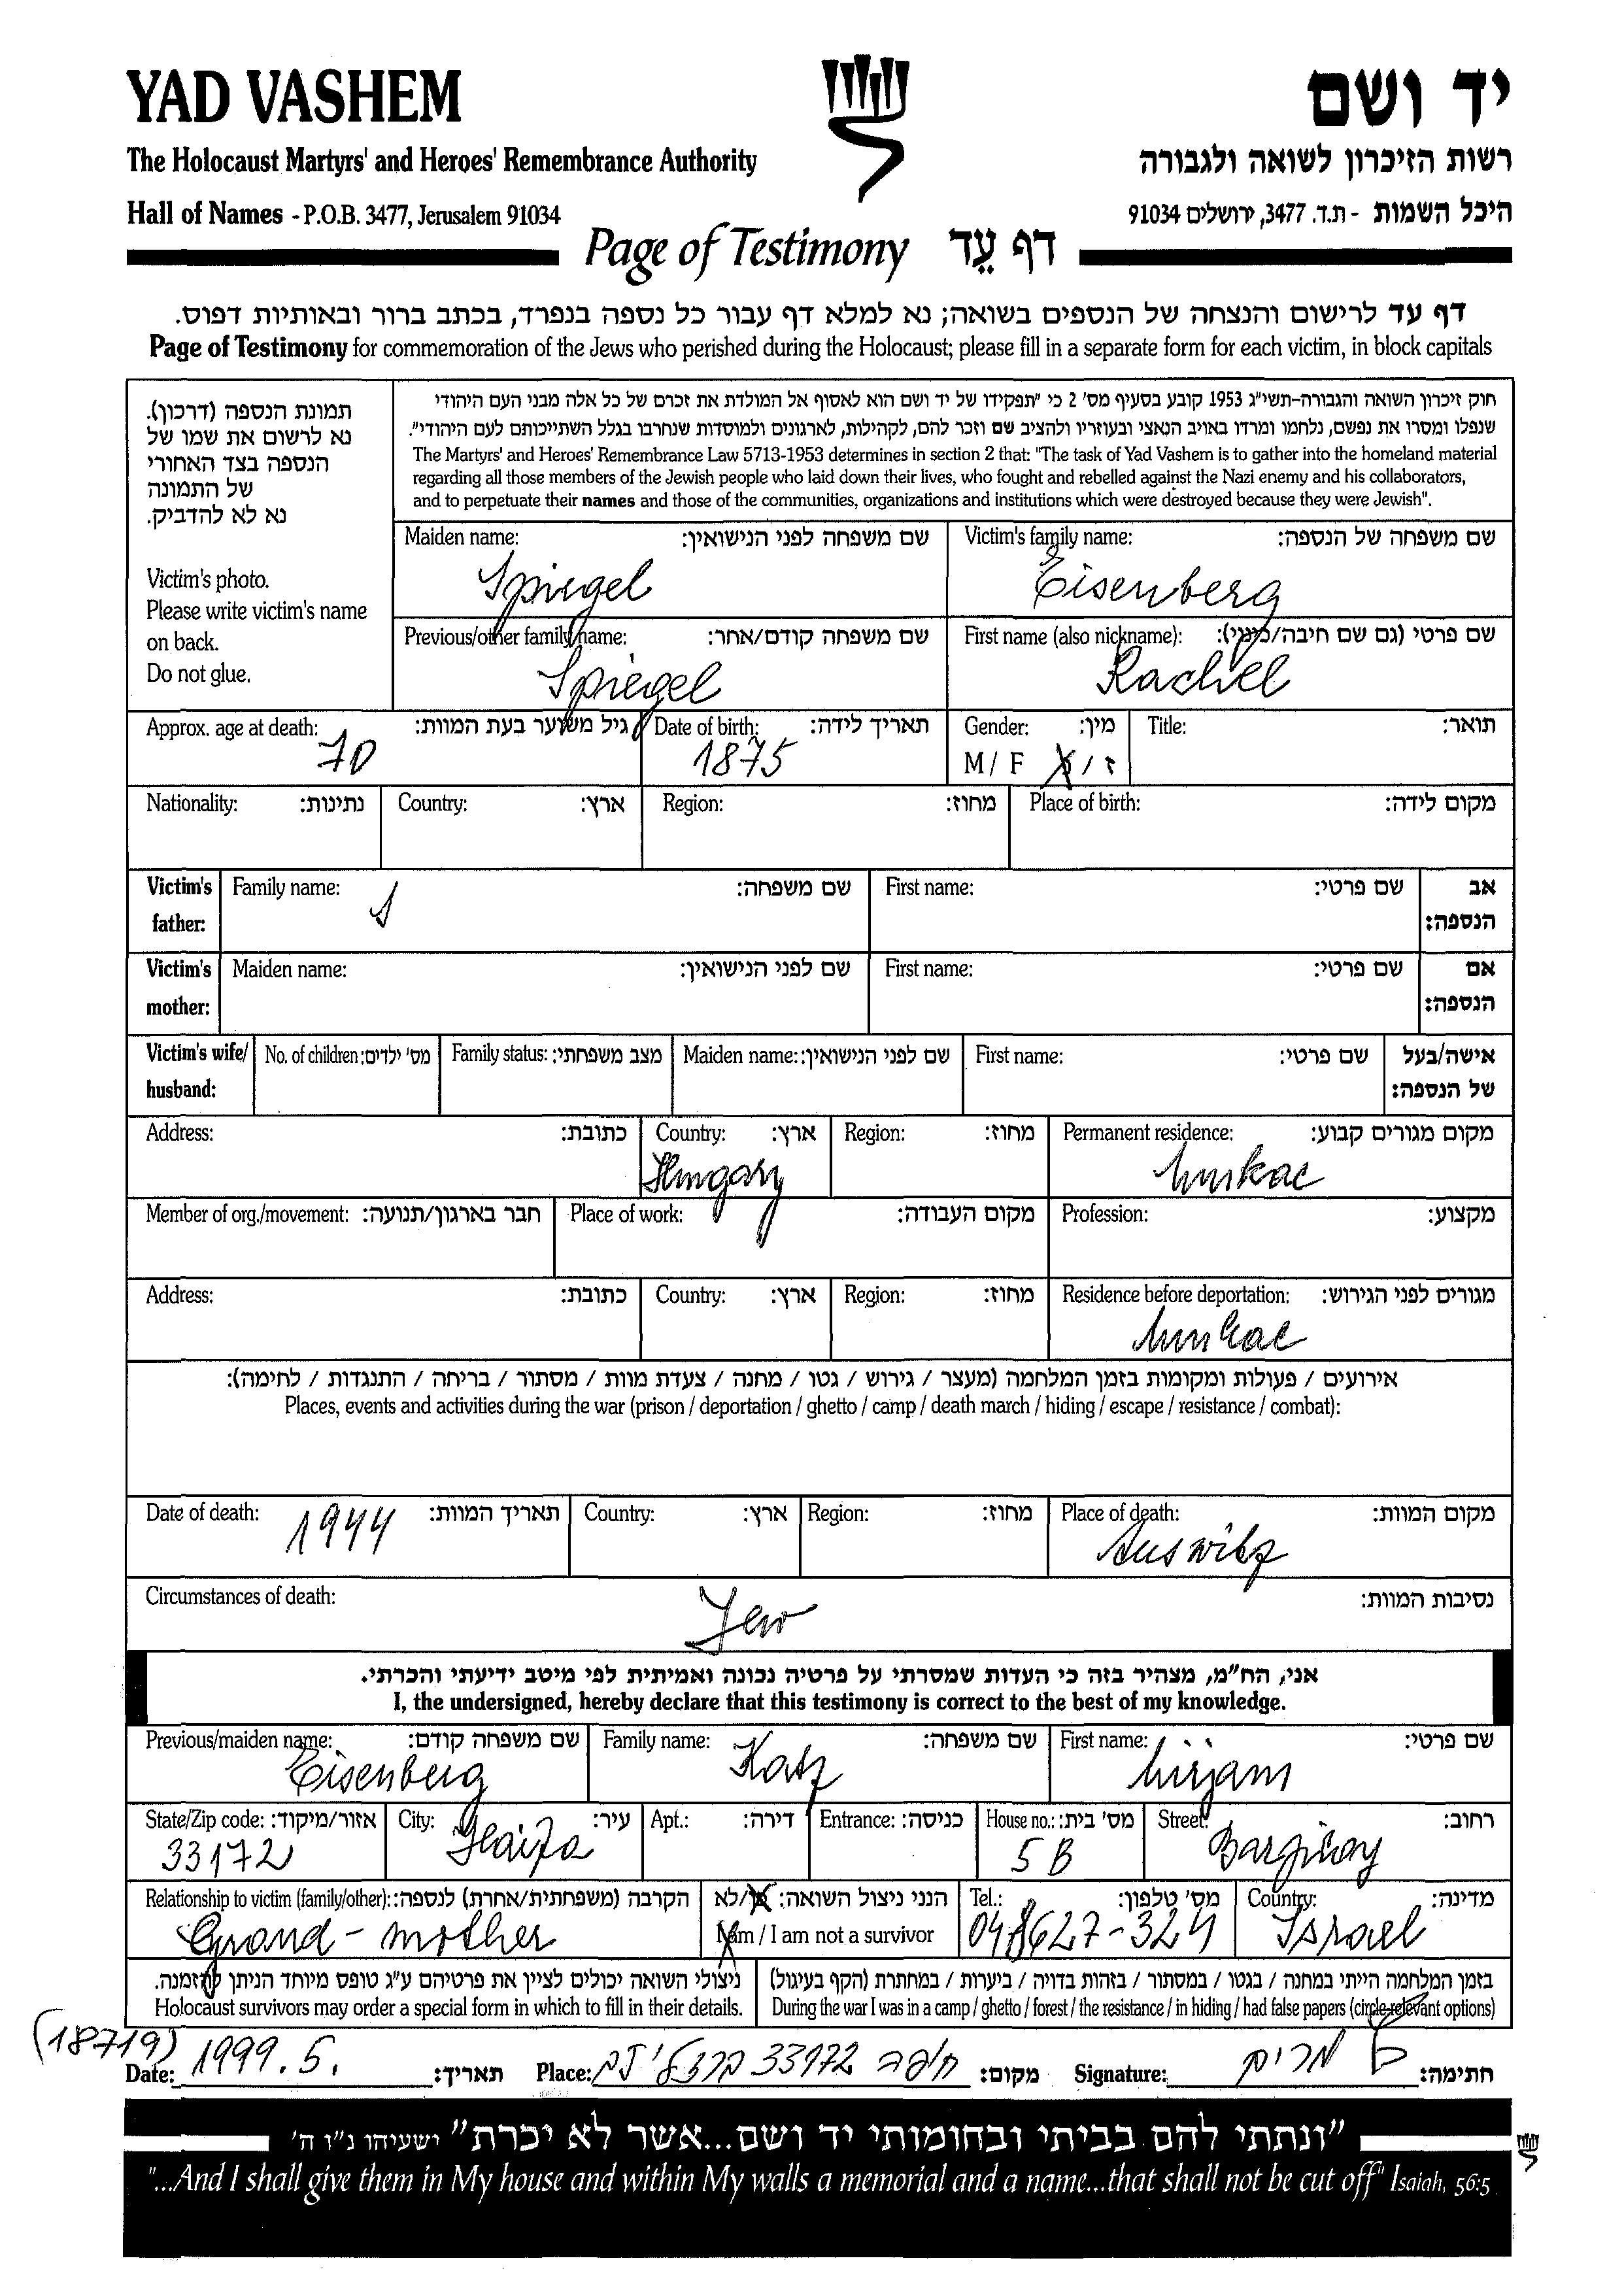 YAD VASHEM
יד ושם
The Holocaust Martyrs' and Heroes' Remembrance Authority
רשות הזיכרון לשואה ולגבורה
Hall of Names - P.O.B. 3477, Jerusalem 91034
היכל השמות - ת.ד. 3477, ירושלים 91034
Page of Testimony דף עֵד
דף עד לרישום והנצחה של הנספים בשואה; נא למלא דף עבור כל נספה בנפרד, בכתב ברור ובאותיות דפוס.
Page of Testimony for commemoration of the Jews who perished during the Holocaust; please fill in a separate form for each victim, in block capitals
תמונת הנספה (דרכון).
נא לרשום את שמו של
הנספה בצד האחורי
של התמונה
נא לא להדביק.
Victim's photo.
Please write victim's name
on back.
Do not glue.
חוק זיכרון השואה והגבורה-תשי"ג 1953 קובע בסעיף מס' 2 כי "תפקידו של יד ושם הוא לאסוף אל המולדת את זכרם של כל אלה מבני העם היהודי
שנפלו ומסרו את נפשם, נלחמו ומרדו באויב הנאצי ובעוזריו ולהציב שם וזכר להם, לקהילות, לארגונים ולמוסדות שנחרבו בגלל השתייכותם לעם היהודי".
The Martyrs' and Heroes' Remembrance Law 5713-1953 determines in section 2 that: "The task of Yad Vashem is to gather into the homeland material
regarding all those members of the Jewish people who laid down their lives, who fought and rebelled against the Nazi enemy and his collaborators,
and to perpetuate their names and those of the communities, organizations and institutions which were destroyed because they were Jewish".
Maiden name: שם משפחה לפני הנישואין: Victim's family name: שם משפחה של הנספה:
Spiegel Eisenberg
Previous/other family name: שם משפחה קודם/אחר: First name (also nickname): שם פרטי (גם שם חיבה/כינוי):
Spiegel Rachel
Approx. age at death: גיל משוער בעת המוות: Date of birth: תאריך לידה: Gender: מין: Title: תואר:
70 1875 M / F ז / נ
Nationality: נתינות: Country: ארץ: Region: מחוז: Place of birth: מקום לידה:
Victim's father: Family name: שם משפחה: First name: שם פרטי: אב הנספה:
Victim's mother: Maiden name: שם לפני הנישואין: First name: שם פרטי: אם הנספה:
Victim's wife/ husband: No. of children: מס' ילדים: Family status: מצב משפחתי: Maiden name: שם לפני הנישואין: First name: שם פרטי: אישה/בעל של הנספה:
Address: כתובת: Country: ארץ: Region: מחוז: Permanent residence: מקום מגורים קבוע:
Hungary Munkac
Member of org./movement: חבר בארגון/תנועה: Place of work: מקום העבודה: Profession: מקצוע:
Address: כתובת: Country: ארץ: Region: מחוז: Residence before deportation: מגורים לפני הגירוש:
Munkac
אירועים / פעולות ומקומות בזמן המלחמה (מעצר / גירוש / גטו / מחנה / צעדת מוות / מסתור / בריחה / התנגדות / לחימה):
Places, events and activities during the war (prison / deportation / ghetto / camp / death march / hiding / escape / resistance / combat):
Date of death: 1944 תאריך המוות: Country: ארץ: Region: מחוז: Place of death: מקום המוות:
Auswitz
Circumstances of death: Jew נסיבות המוות:
אני, הח"מ, מצהיר בזה כי העדות שמסרתי על פרטיה נכונה ואמיתית לפי מיטב ידיעתי והכרתי.
I, the undersigned, hereby declare that this testimony is correct to the best of my knowledge.
Previous/maiden name: שם משפחה קודם: Family name: שם משפחה: First name: שם פרטי:
Eisenberg Katz Mirjam
State/Zip code: אזור/מיקוד: City: עיר: Apt.: דירה: Entrance: כניסה: House no.: מס' בית: Street: רחוב:
33172 Haifa 5 B
Relationship to victim (family/other): הקרבה (משפחתית/אחרת) לנספה: הנני ניצול השואה: כן/לא Tel.: מס' טלפון: Country: מדינה:
Grand-mother I am / I am not a survivor 048627-324 Israel
ניצולי השואה יכולים לציין את פרטיהם ע"ג טופס מיוחד הניתן להזמנה.
Holocaust survivors may order a special form in which to fill in their details.
בזמן המלחמה הייתי במחנה / בגטו / במסתור / בזהות בדויה / ביערות / במחתרת (הקף בעיגול)
During the war I was in a camp / ghetto / forest / the resistance / in hiding / had false papers (circle relevant options)
(18719)
Date: 1999.5. תאריך: Place: חיפה 33172 מקום: Signature: מרים חתימה:
"ונתתי להם בביתי ובחומותי יד ושם...אשר לא יכרת" ישעיהו נ"ו ה'
"...And I shall give them in My house and within My walls a memorial and a name...that shall not be cut off" Isaiah, 56:5